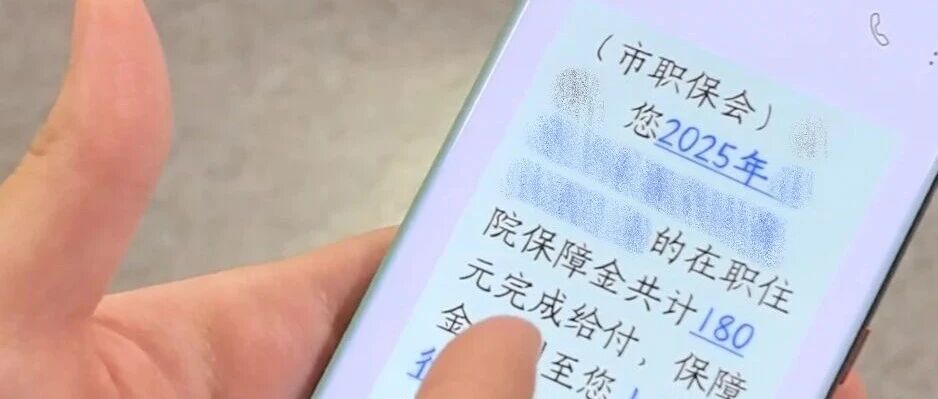 （市职保会）
您2025年
的在职住
院保障金共计180
元完成给付，保障
金 至您